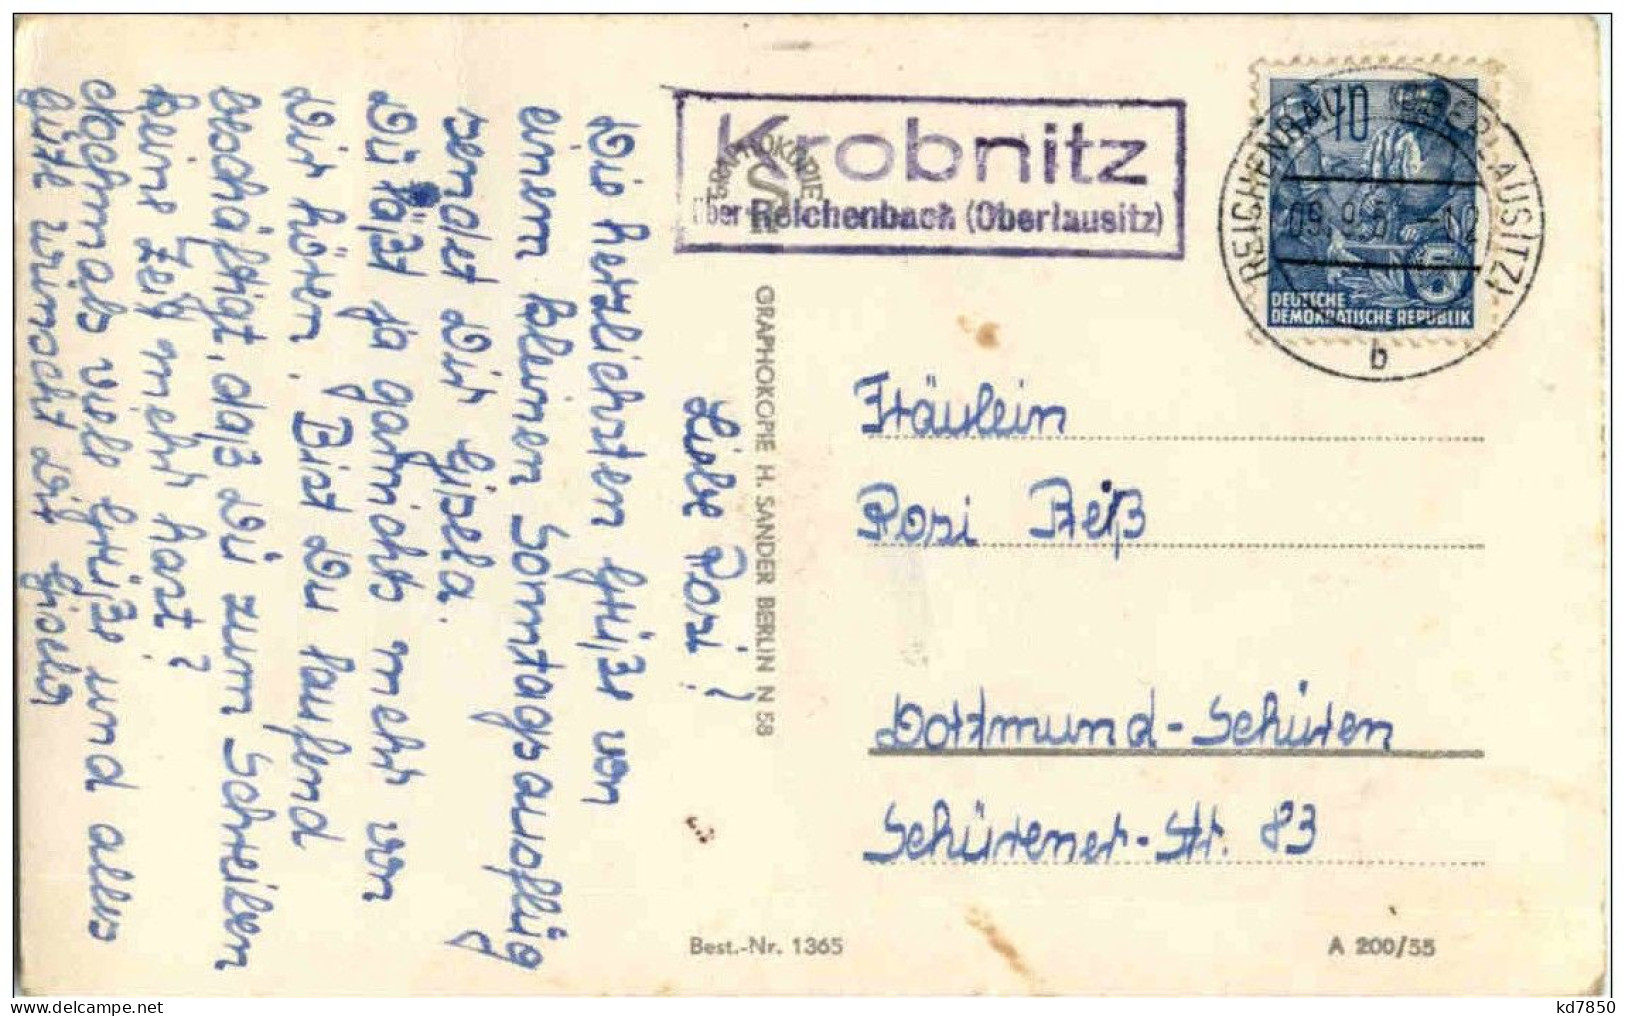 Liebe Rosi!
Die herzlichsten Grüße von
einem kleinen Sonntagsausflug
sendet Dir Gisela.
Du läßt ja garnichts mehr von
Dir hören. Bist Du laufend
beschäftigt, daß Du zum Schreiben
keine Zeit mehr hast?
Nochmals viele Grüße und alles
Gute wünscht Dir Gisela
Krobnitz
über Reichenbach (Oberlausitz)
GRAPHOKOPIE
GRAPHOKOPIE H. SANDER BERLIN N 58
10
DEUTSCHE
DEMOKRATISCHE REPUBLIK
REICHENBACH (OBERLAUSITZ)
b
Fräulein
Rosi Reiß
Dortmund-Schüren
Schürener-Str. 83
Best.-Nr. 1365
A 200/55
kd7850